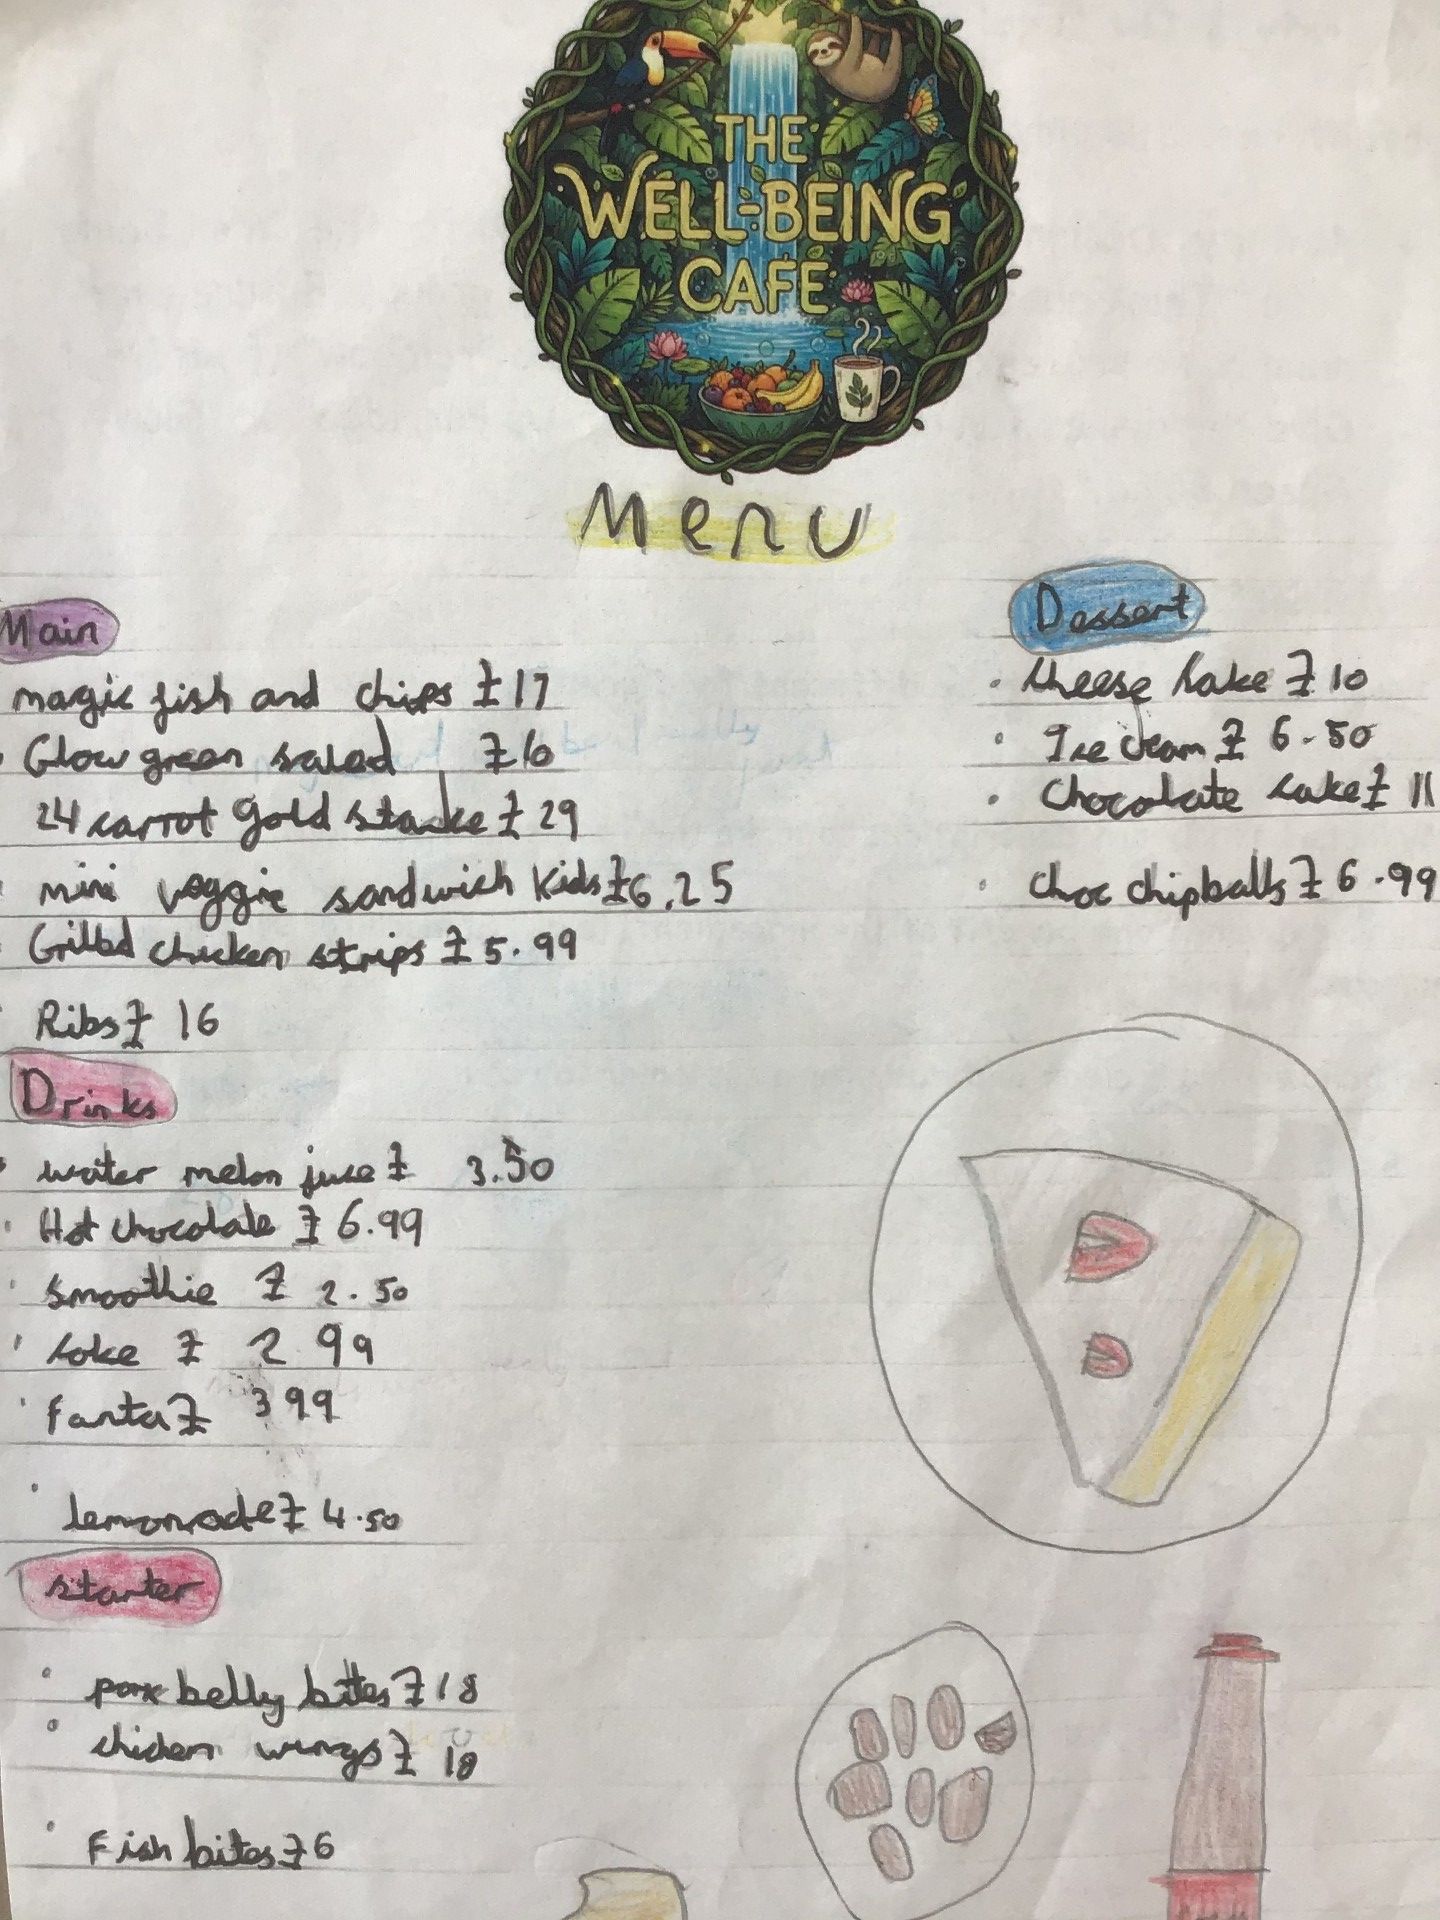 THE
WELL-BEING
CAFÉ
Menu
Main
magic fish and chips £17
Glow green salad £10
24 carrot gold stanke £29
mini veggie sandwich Kids £6.25
Grilled chicken strips £5.99
Ribs £16
Drinks
water melon juce £ 3.50
Hot chocolate £6.99
smoothie £ 2.50
coke £ 2 99
Fanta £ 3 99
lemonade £4.50
starter
pork belly bites £18
chicken wings £ 18
Fish bites £6
Dessert
Cheese cake £10
Ice cream £ 6.50
Chocolate cake £ 11
choc chip balls £6.99